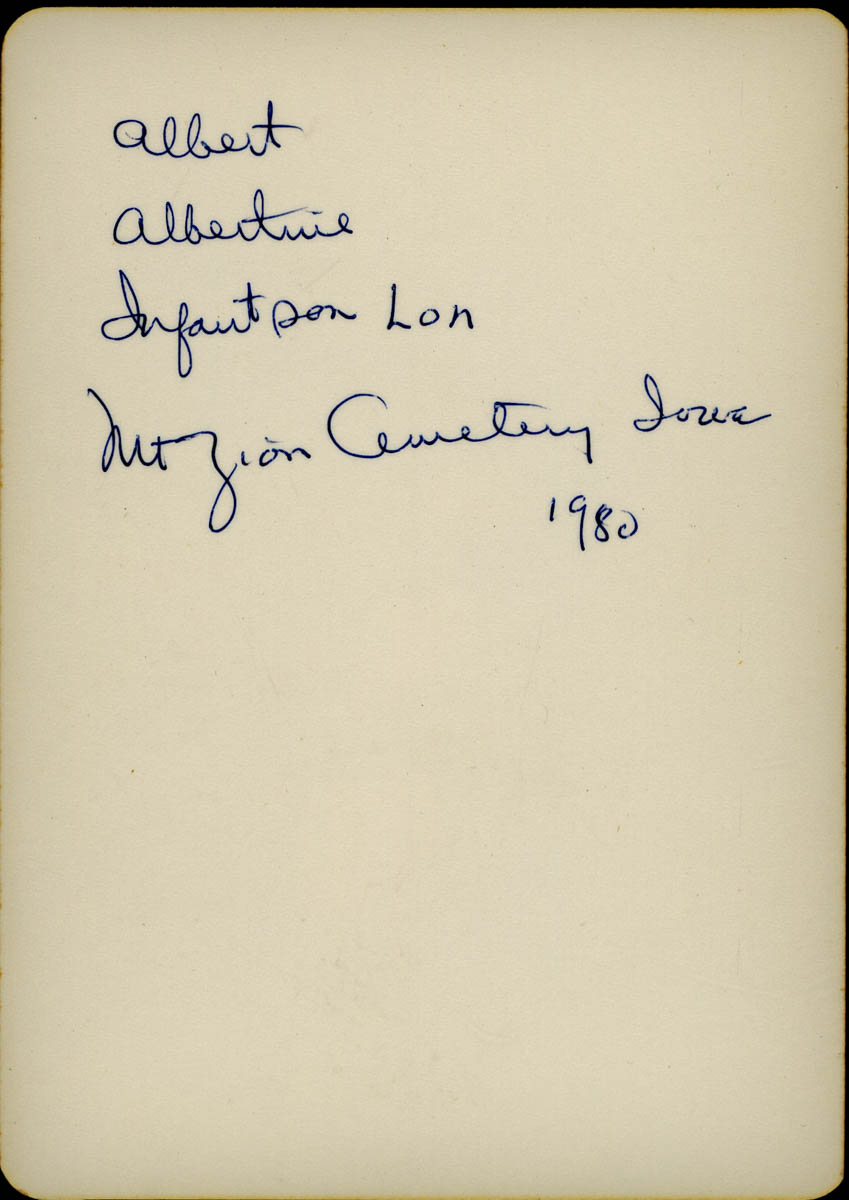 Albert
Albertine
Infant son Lon
Mt Zion Cemetery Iowa
1980